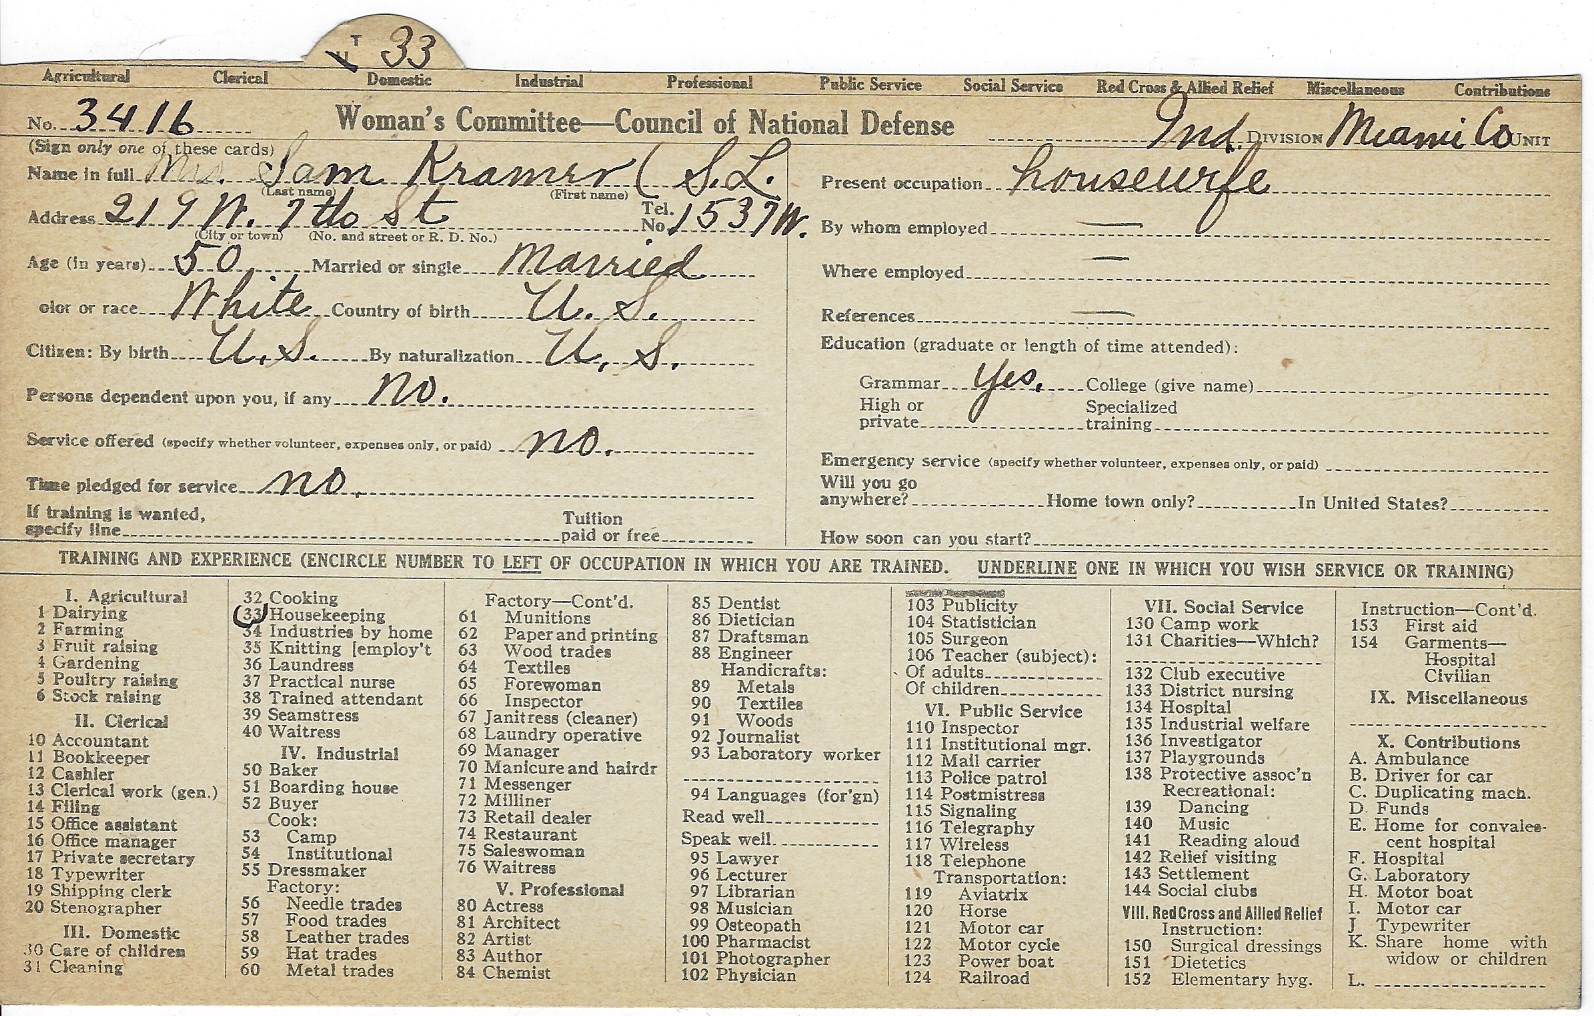 T 33
Agricultural Clerical Domestic Industrial Professional Public Service Social Service Red Cross & Allied Relief Miscellaneous Contributions
No. 3416 Woman's Committee—Council of National Defense Ind. DIVISION Miami Co UNIT
(Sign only one of these cards)
Name in full Mrs. Sam Kramer (S.L.
(Last name) (First name)
Address 219 W. 7th St Tel. No. 1537W.
(City or town) (No. and street or R. D. No.)
Age (in years) 50 Married or single Married
olor or race White Country of birth U. S.
Citizen: By birth U.S. By naturalization U, S.
Persons dependent upon you, if any no.
Service offered (specify whether volunteer, expenses only, or paid) no.
Time pledged for service no.
If training is wanted,
specify line Tuition paid or free
Present occupation housewife
By whom employed —
Where employed —
References —
Education (graduate or length of time attended):
Grammar Yes. College (give name)
High or private Specialized training
Emergency service (specify whether volunteer, expenses only, or paid)
Will you go
anywhere? Home town only? In United States?
How soon can you start?
TRAINING AND EXPERIENCE (ENCIRCLE NUMBER TO LEFT OF OCCUPATION IN WHICH YOU ARE TRAINED. UNDERLINE ONE IN WHICH YOU WISH SERVICE OR TRAINING)
I. Agricultural
1 Dairying
2 Farming
3 Fruit raising
4 Gardening
5 Poultry raising
6 Stock raising
II. Clerical
10 Accountant
11 Bookkeeper
12 Cashier
13 Clerical work (gen.)
14 Filing
15 Office assistant
16 Office manager
17 Private secretary
18 Typewriter
19 Shipping clerk
20 Stenographer
III. Domestic
30 Care of children
31 Cleaning
32 Cooking
33 Housekeeping
34 Industries by home
35 Knitting [employ't
36 Laundress
37 Practical nurse
38 Trained attendant
39 Seamstress
40 Waitress
IV. Industrial
50 Baker
51 Boarding house
52 Buyer
Cook:
53 Camp
54 Institutional
55 Dressmaker
Factory:
56 Needle trades
57 Food trades
58 Leather trades
59 Hat trades
60 Metal trades
Factory—Cont'd.
61 Munitions
62 Paper and printing
63 Wood trades
64 Textiles
65 Forewoman
66 Inspector
67 Janitress (cleaner)
68 Laundry operative
69 Manager
70 Manicure and hairdr
71 Messenger
72 Milliner
73 Retail dealer
74 Restaurant
75 Saleswoman
76 Waitress
V. Professional
80 Actress
81 Architect
82 Artist
83 Author
84 Chemist
85 Dentist
86 Dietician
87 Draftsman
88 Engineer
Handicrafts:
89 Metals
90 Textiles
91 Woods
92 Journalist
93 Laboratory worker
94 Languages (for'gn)
Read well
Speak well
95 Lawyer
96 Lecturer
97 Librarian
98 Musician
99 Osteopath
100 Pharmacist
101 Photographer
102 Physician
103 Publicity
104 Statistician
105 Surgeon
106 Teacher (subject):
Of adults
Of children
VI. Public Service
110 Inspector
111 Institutional mgr.
112 Mail carrier
113 Police patrol
114 Postmistress
115 Signaling
116 Telegraphy
117 Wireless
118 Telephone
Transportation:
119 Aviatrix
120 Horse
121 Motor car
122 Motor cycle
123 Power boat
124 Railroad
VII. Social Service
130 Camp work
131 Charities—Which?
132 Club executive
133 District nursing
134 Hospital
135 Industrial welfare
136 Investigator
137 Playgrounds
138 Protective assoc'n
Recreational:
139 Dancing
140 Music
141 Reading aloud
142 Relief visiting
143 Settlement
144 Social clubs
VIII. Red Cross and Allied Relief
Instruction:
150 Surgical dressings
151 Dietetics
152 Elementary hyg.
Instruction—Cont'd.
153 First aid
154 Garments—
Hospital
Civilian
IX. Miscellaneous
X. Contributions
A. Ambulance
B. Driver for car
C. Duplicating mach.
D. Funds
E. Home for convales-
cent hospital
F. Hospital
G. Laboratory
H. Motor boat
I. Motor car
J Typewriter
K. Share home with
widow or children
L.